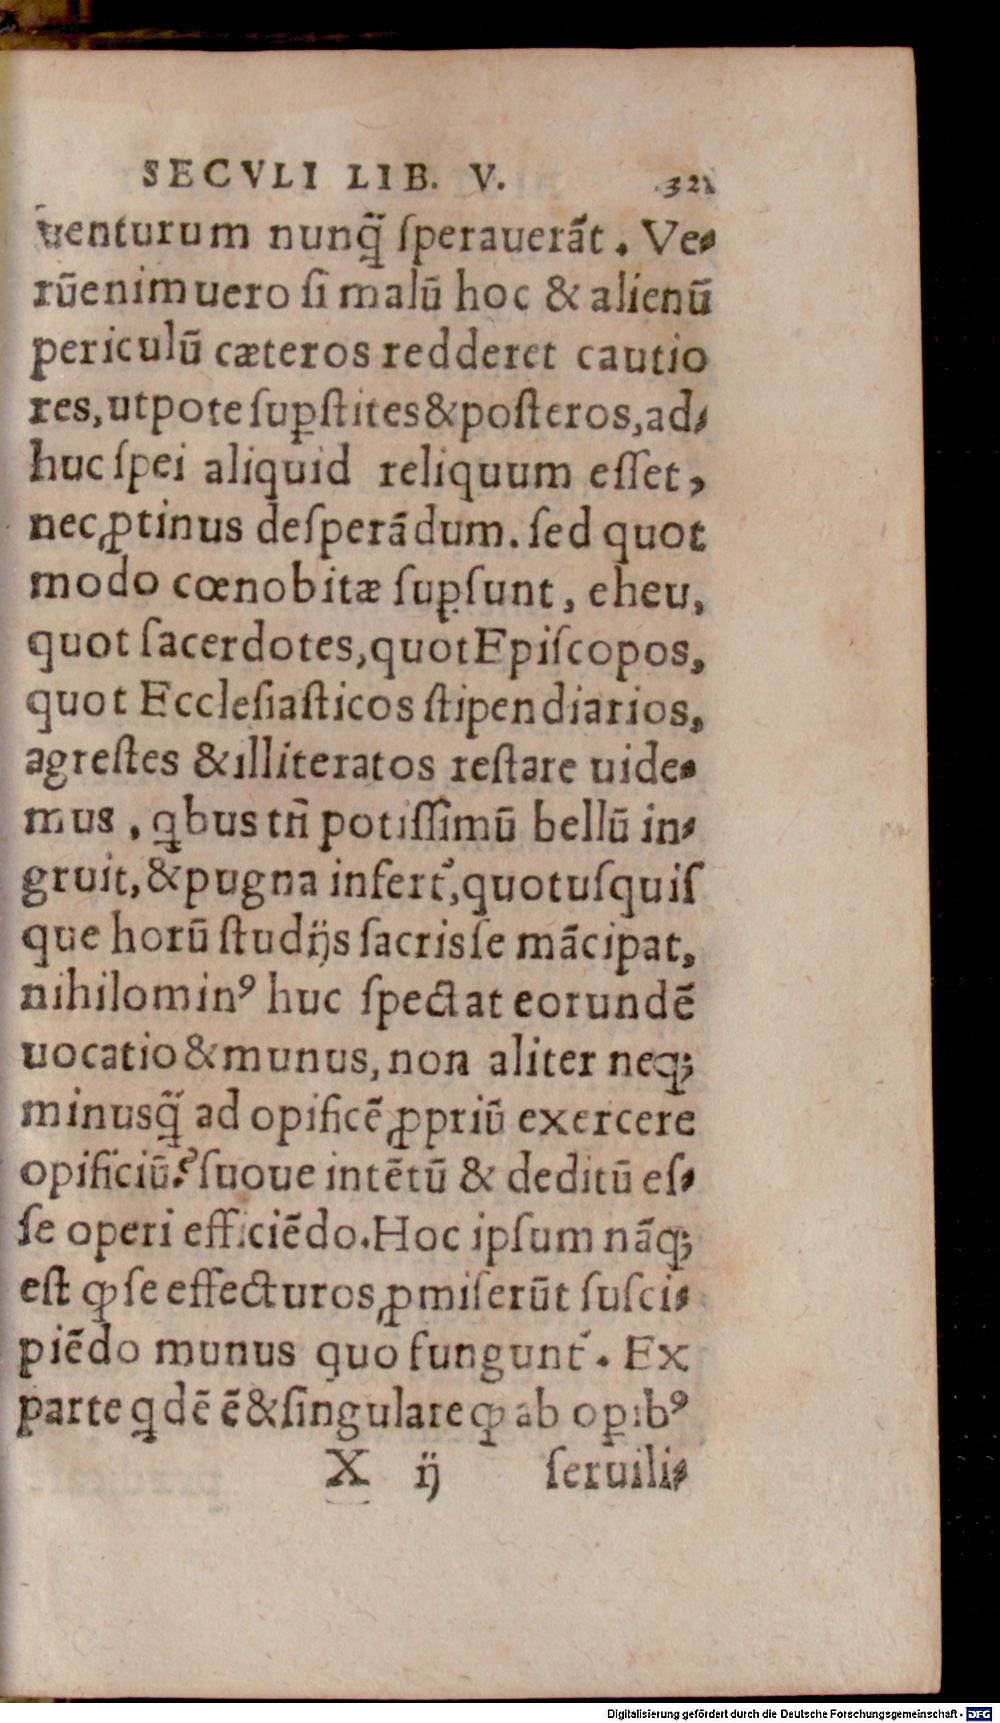 SECVLI LIB. V. 321
uenturum nunq̃ ſperauerãt. Ve-
rũenimuero ſi malũ hoc & alienũ
periculũ cæteros redderet cautio
res, utpote ſuꝑſtites & poſteros, ad-
huc ſpei aliquid reliquum eſſet,
nec ꝓtinus deſperãdum. ſed quot
modo cœnobitæ ſuꝑſunt, eheu,
quot ſacerdotes, quot Epiſcopos,
quot Eccleſiaſticos ſtipendiarios,
agreſtes & illiteratos reſtare uide-
mus, ꝗbus tñ potiſſimũ bellũ in-
gruit, & pugna infert᷑, quotuſquiſ
que horũ ſtudijs ſacris ſe mãcipat,
nihilominꝰ huc ſpectat eorundẽ
uocatio & munus, non aliter neqꝫ
minusq̃ ad opificẽ ꝓpriũ exercere
opificiũ? ſuoue intẽtũ & deditũ eſ-
ſe operi efficiẽdo. Hoc ipſum nãqꝫ
eſt ꝙ ſe effecturos ꝓmiſerũt ſuſci-
piẽdo munus quo fungunt᷑. Ex
parte ꝗdẽ ẽ & ſingulare ꝙ ab oꝑibꝰ
X ij ſeruili-
Digitalisierung gefördert durch die Deutsche Forschungsgemeinschaft - DFG